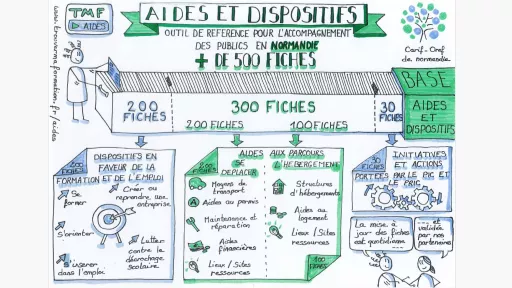 TMF
AIDES
www.trouvermaformation.fr/aides
AIDES ET DISPOSITIFS
OUTIL DE REFERENCE POUR L'ACCOMPAGNEMENT
DES PUBLICS EN NORMANDIE
+ DE 500 FICHES
Carif-Oref
de normandie
200
FICHES
300 FICHES
200 FICHES
100 FICHES
30
FICHES
BASE
AIDES
ET
DISPOSITIFS
200
FICHES
DISPOSITIFS EN
FAVEUR DE LA
FORMATION ET DE L'EMPLOI
Se
former
Créer ou
reprendre une
entreprise
S'orienter
Lutter
contre le
décrochage
scolaire
S'insérer
dans l'emploi
200
FICHES
AIDES AUX PARCOURS
SE
DEPLACER
Moyens de
transport
Aides au permis
Maintenance et
réparation
Aides
financières
Lieux / Sites
ressources
L'HÉBERGEMENT
Structures
d'hébergements
Aides au
logement
Lieux / Sites
ressources
100
FICHES
30
FICHES
INITIATIVES
ET ACTIONS
PORTÉES PAR LE PIC ET
LE PRIC
La mise à
jour des fiches
est quotidienne
et validée
par nos
partenaires